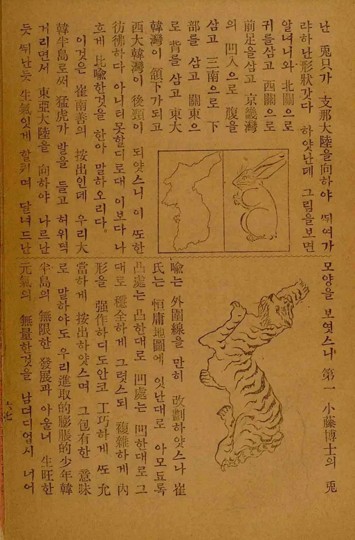 난 兎只가 支那大陸을向하야 뛰여가
랴하난形狀갓다 하얏난데 그림을보면
알녀니와 北關으로
귀를삼고 西關으로
前足을삼고 京畿灣
의 凹入으로 腹을
삼고 三南으로 下
部를 삼고 關東으
로 背를 삼고 東大
韓灣이 頷下가되고
西大韓灣이 後頸이 되얏스니 이 또한
彷彿하다 아니티못할디로대 이보다나
흐게 比喩한것을 한아 말하오리다.
이것은 崔南善의 按出인데 우리大
韓半島로써 猛虎가 발을 들고 허위덕
거리면서 東亞大陸을 向하야 나르난
듯 뛰난듯 生氣잇게 할퀴며 달녀드난
모양을 보엿스니 第一 小藤博士의 兎
喩는 外圍線을 만히 改劃하얏스나 崔
氏는 恒庸地圖에 잇난대로 아모됴록
凸處는 凸한대로 凹處는 凹한대로 그
대로 穩全하게 그렷스되 複雜하게 內
形을 强作하디도안코 工巧하게 또 允
當하게 按出하얏스며 그包有한 意味
로 말하야도 우리進取的膨脹的少年韓
半島의 無限한 發展과 아울너 生旺한
元氣의 無量한것을 남뎌디업시 너어